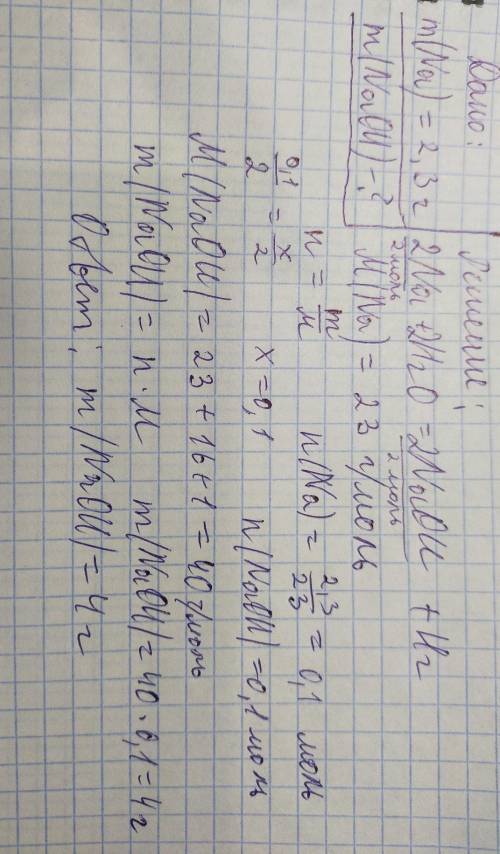 Дано:
m(Na) = 2,3 г
m(NaOH) - ?
Решение:
2Na + 2H₂O = 2NaOH + H₂
2 моль 2 моль
M(Na) = 23 г/моль
n = m/M n(Na) = 2,3/23 = 0,1 моль
0,1/2 = x/2 x = 0,1 n(NaOH) = 0,1 моль
M(NaOH) = 23 + 16 + 1 = 40 г/моль
m(NaOH) = n · M m(NaOH) = 40 · 0,1 = 4 г
Ответ: m(NaOH) = 4 г